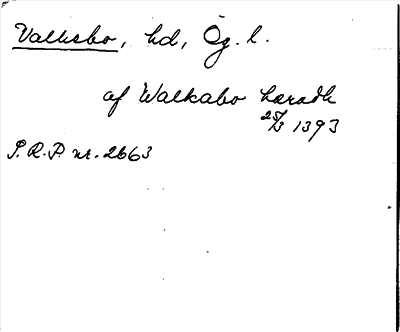 Valkebo, hd, Ög. l.
af Walkabo hæradh
25/3 1393
S.R.P. nr. 2663